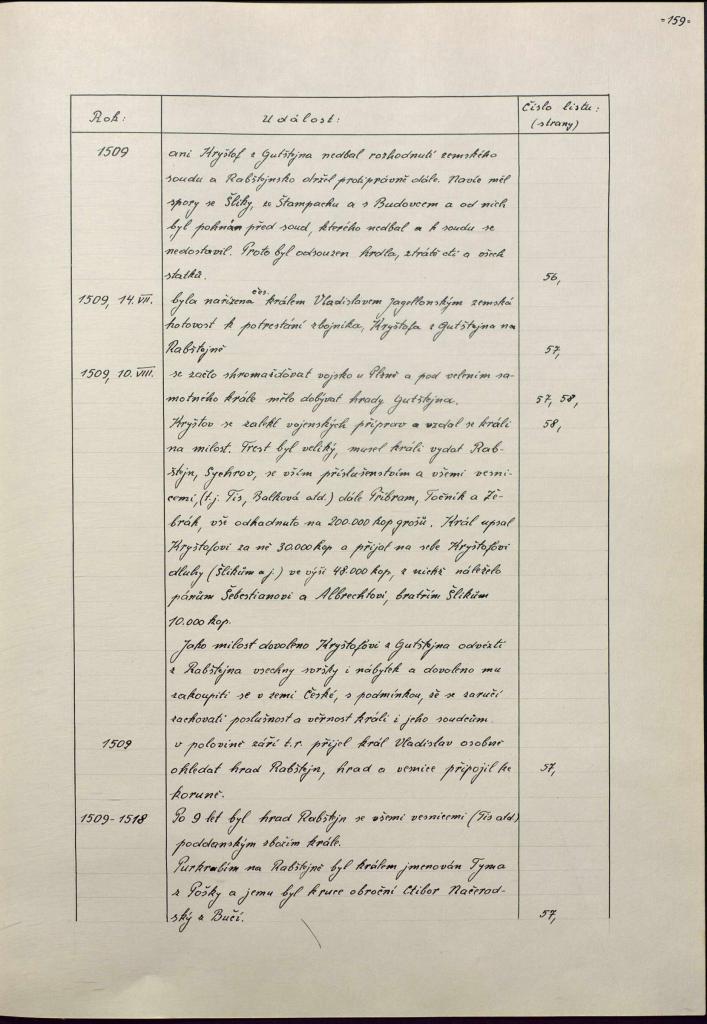 =159=
Rok: Událost: Číslo listu:
(strany)
1509 ani Kryštof z Gutštejna nedbal rozhodnutí zemského
soudu a Rabštejnsko držel protiprávně dále. Navíc měl
spory se Šliky, ze Štampachu a s Budovcem a od nich
byl pohnán před soud, kterého nedbal a k soudu se
nedostavil. Proto byl odsouzen hrdla, ztrátě cti a všech
statků. 56,
1509, 14. VII. byla nařízena čes. králem Vladislavem Jagellonským zemská
hotovost k potrestání zbojníka, Kryštofa z Gutštejna na
Rabštejně 57,
1509, 10. VIII. se začlo shromažďovat vojsko u Plzně a pod velením sa-
motného krále mělo dobývat hrady Gutštejna. 57, 58,
Kryštov se zalekl vojenských příprav a vzdal se králi 58,
na milost. Trest byl veliký, musel králi vydat Rab-
štejn, Sychrov, se vším příslušenstvím a všemi vesni-
cemi, (t.j. Tis, Balková atd.) dále Příbram, Točník a Že-
brák, vše odhadnuto na 200.000 kop grošů. Král upsal
Kryštofovi za ně 30.000 kop a přijal na sebe Kryštofovi
dluhy (Šlikům aj.) ve výši 48.000 kop, z nichž náleželo
pánům Šebestianovi a Albrechtovi, bratřím Šlikům
10.000 kop.
Jako milost dovoleno Kryštofovi z Gutštejna odvézti
z Rabštejna všechny svršky i nábytek a dovoleno mu
zakoupiti se v zemi České, s podmínkou, že se zaručí
zachovati poslušnost a věrnost králi i jeho soudcům.
1509 v polovině září t.r. přijel král Vladislav osobně
ohledat hrad Rabštejn, hrad a vesnice připojil ke 57,
koruně.
1509-1518 Po 9 let byl hrad Rabštejn se všemi vesnicemi (Tis atd.)
poddanským zbožím krále.
Purkrabím na Rabštejně byl králem jmenován Tyma
z Pošky a jemu byl k ruce obroční Ctibor Načerad-
ský z Bučí. 57,